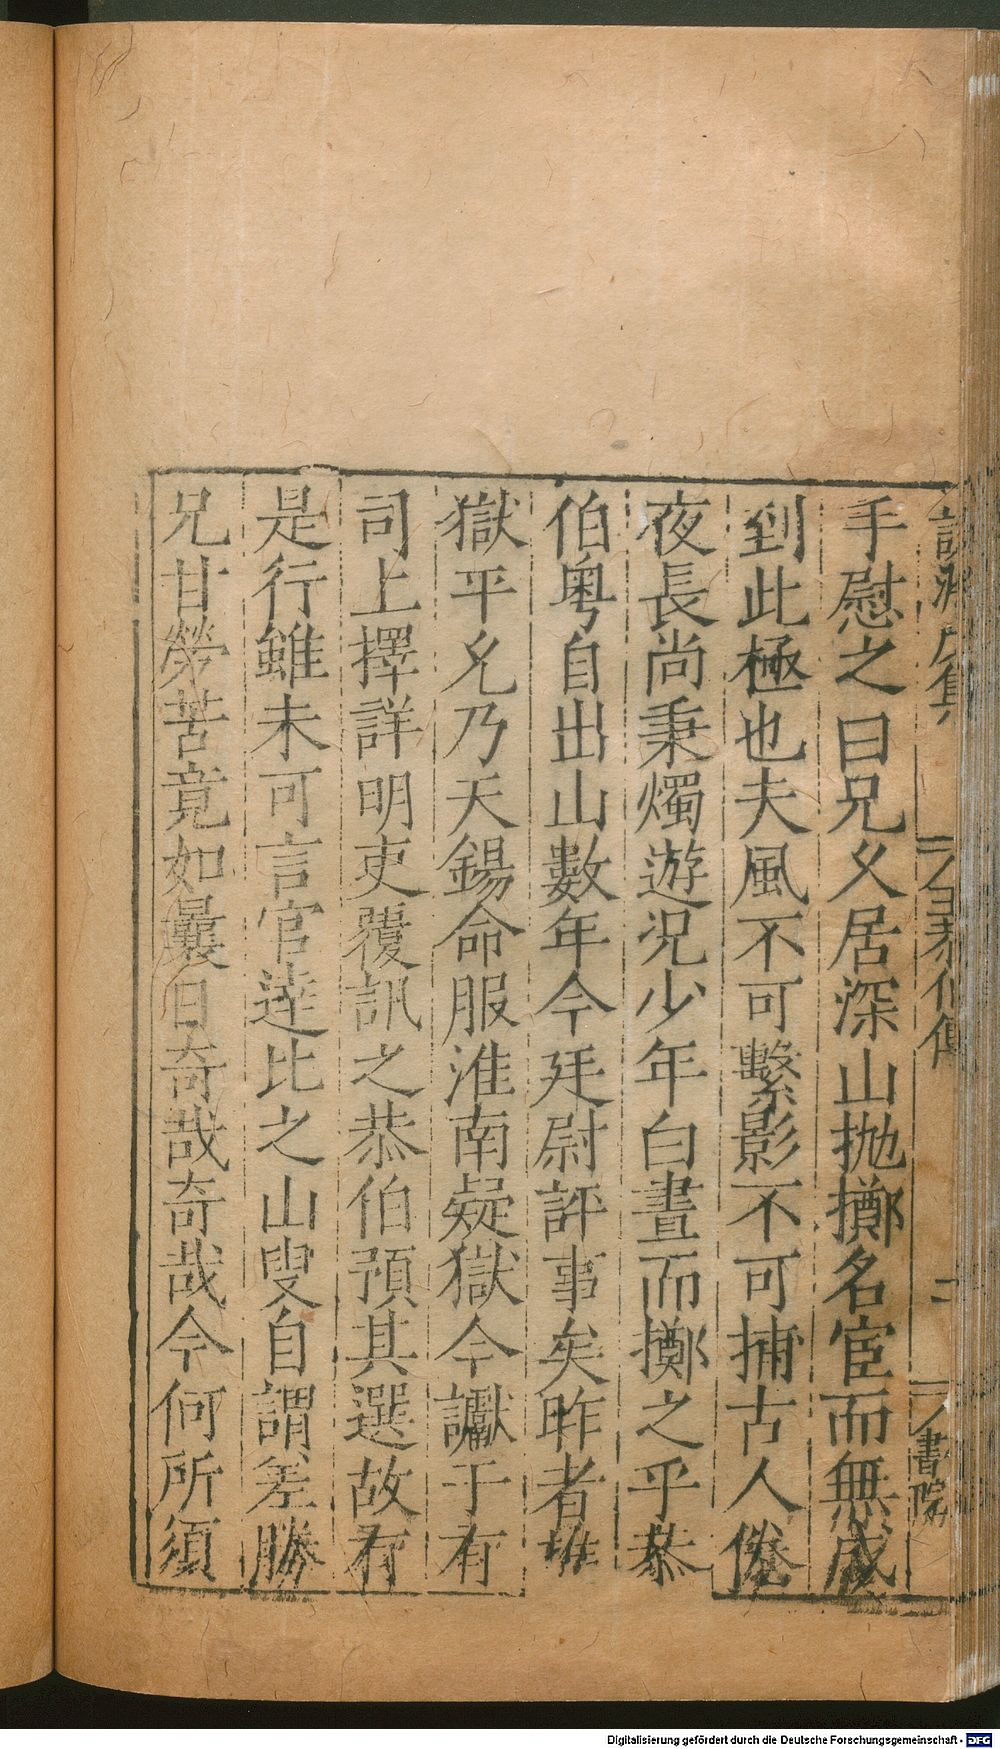 恭伯傳 二 書院
手慰之曰兄久居深山拋擲名宦而無成
到此極也夫風不可繫影不可捕古人倦
夜長尚秉燭遊況少年白晝而擲之乎恭
伯粤自出山數年今廷尉評事矣昨者推
獄平允乃天錫命服淮南疑獄今讞于有
司上擇詳明吏覆訊之恭伯預其選故有
是行雖未可言官達比之山叟自謂差勝
兄甘勞苦竟如曩日奇哉奇哉今何所須
Digitalisierung gefördert durch die Deutsche Forschungsgemeinschaft - DFG